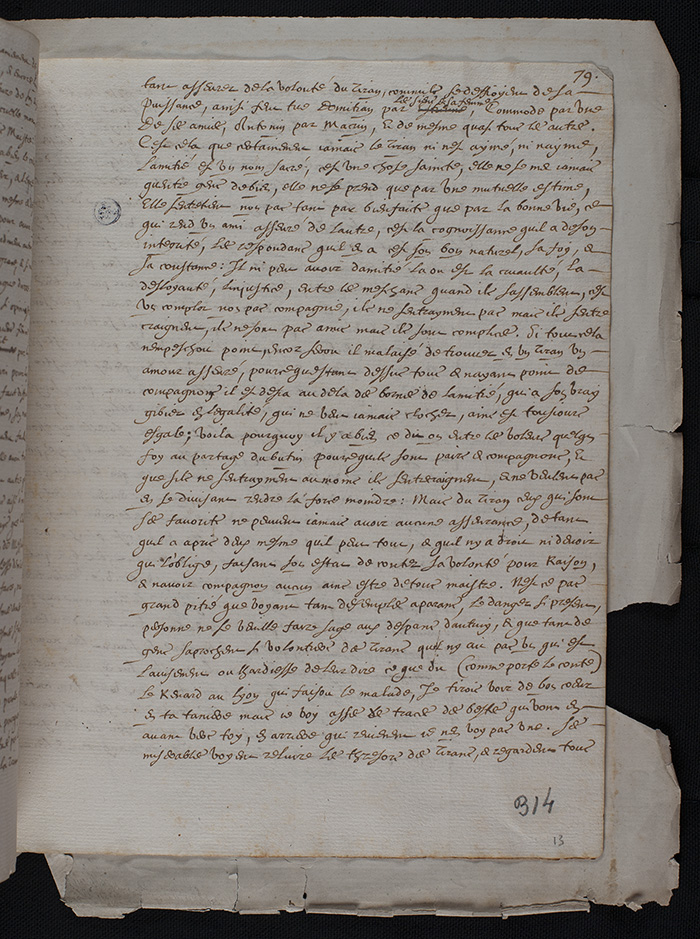 79.
tant asseurez de la volonté du tiran, comme ilz se deffoyent de sa
puissance, ainsi feut tué Domitian par Estienne, Commode par une
de ses amies, Antonin par Macrin, & de mesme quasi tous les autres.
C'est cela que certainement iamais le tiran ni n'est aymé, ni n'ayme,
L'amitié est un nom sacré, c'est une chose saincte, elle ne se met iamais
qu'entre gens de bien, elle ne se prend que par une mutuelle estime,
Elle s'entretien non pas tant par bienfaits que par la bonne vie, ce
qui rend un ami asseuré de l'autre, c'est la cognoissance qu'il a de son
integrité, les respondans qu'il en a c'est son bon naturel, la foy, &
la constance: Il ni peut avoir d'amitié la ou est la cruaulté, la
desloyauté, l'injustice, entre les meschans quand ilz s'assemblent, c'est
un complot non pas compagnie, ilz ne s'entrayment pas mais ilz s'entre
craignent, ilz ne sont pas amis mais ilz sont complices. Or tout cela
n'empeschoit point, encor seroit il malaisé de trouver en un tiran un
amour asseuré, pource qu'estant dessus tous & n'ayant point de
compagnons il est desia au dela des bornes de l'amitié, qui a son vray
gibier en l'egalité, qui ne veut iamais clocher, ains est tousiours
esgale; voila pourquoy il y a bien ce dit on entre les voleurs quelque
foy au partage du butin pource qu'ils sont pairs & compagnons, &
que s'ilz ne s'entrayment au moins ilz s'entrecraignent, & ne veulent pas
en se divisant rendre la force moindre: Mais du tiran ceux qui sont
ses favorits ne peuvent iamais avoir aucune asseurance, de tant
qu'il a apris d'eux mesme qu'il peut tout, & qu'il n'y a droit ni devoir
qui l'oblige, faisant son estat de conter sa volonté pour Raison,
& n'avoir compagnon aucun ains estre de tous maistre. N'est ce pas
grand pitié que voyant tant d'exemples aparans, le danger si present,
personne ne se veuille faire sage aux despans d'autruy, & que tant de
gens s'aprochent si volontiers des tirans qu'il n'y ait pas un qui ait
l'avisement ou hardiesse de leur dire ce que dit (comme porte le conte)
le Renard au Lyon qui faisoit le malade, Je t'irois voir de bon cœur
en ta taniere mais ie voy assez de traces de bestes qui vont en
avant vers toy, en arriere qui reviennent ie n'en voy pas une. Ces
miserables voyent reluire les thresors des tirans, & regardent tous
314
13